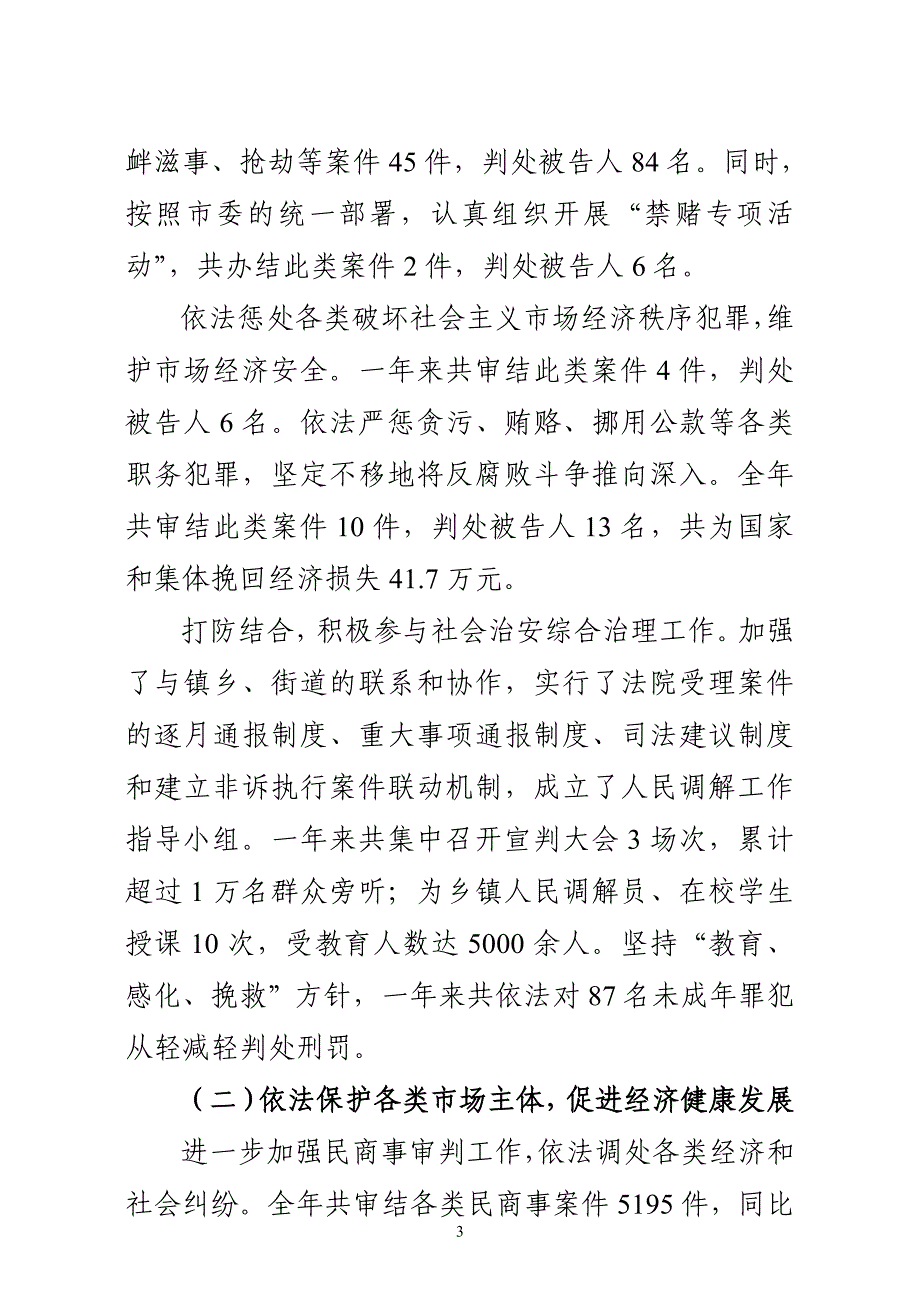 衅滋事、抢劫等案件 45 件，判处被告人 84 名。同时，
按照市委的统一部署，认真组织开展“禁赌专项活
动”，共办结此类案件 2 件，判处被告人 6 名。
依法惩处各类破坏社会主义市场经济秩序犯罪，维
护市场经济安全。一年来共审结此类案件 4 件，判处
被告人 6 名。依法严惩贪污、贿赂、挪用公款等各类
职务犯罪，坚定不移地将反腐败斗争推向深入。全年
共审结此类案件 10 件，判处被告人 13 名，共为国家
和集体挽回经济损失 41.7 万元。
打防结合，积极参与社会治安综合治理工作。加强
了与镇乡、街道的联系和协作，实行了法院受理案件
的逐月通报制度、重大事项通报制度、司法建议制度
和建立非诉执行案件联动机制，成立了人民调解工作
指导小组。一年来共集中召开宣判大会 3 场次，累计
超过 1 万名群众旁听；为乡镇人民调解员、在校学生
授课 10 次，受教育人数达 5000 余人。坚持“教育、
感化、挽救”方针，一年来共依法对 87 名未成年罪犯
从轻减轻判处刑罚。
（二）依法保护各类市场主体，促进经济健康发展
进一步加强民商事审判工作，依法调处各类经济和
社会纠纷。全年共审结各类民商事案件 5195 件，同比
3